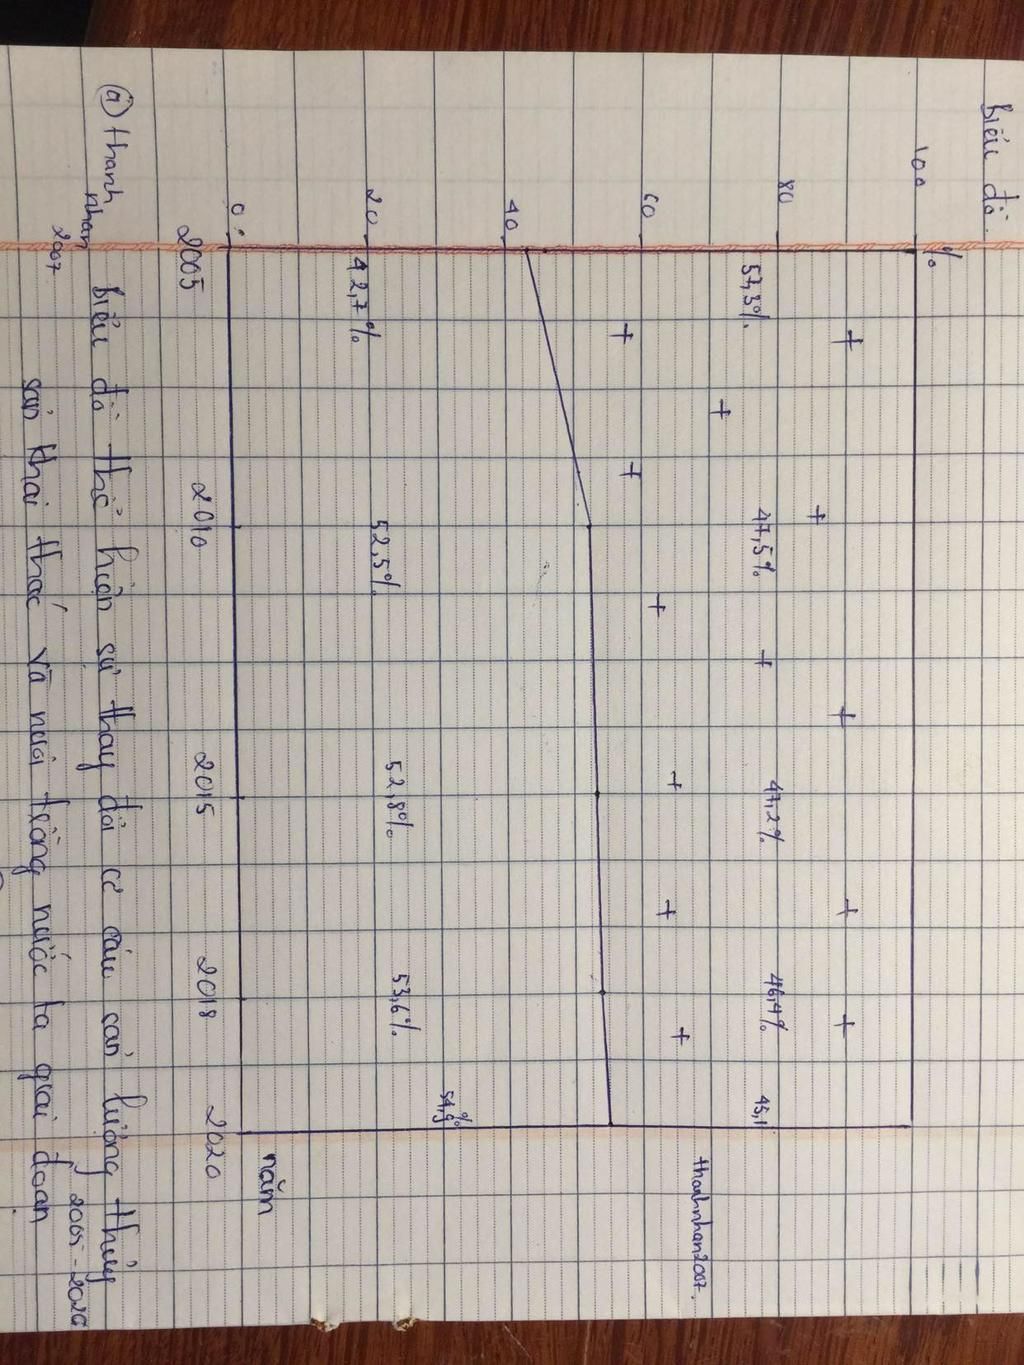 Biểu đồ.
%
100
80
60
40
20
0
57,3%
47,5%
47,2%
46,4%
45,1
42,7%
52,5%
52,8%
53,6%
54,9%
2005
2010
2015
2018
2020
năm
thanhnhan2007.
@thanh
nhan
2007
Biểu đồ thể hiện sự thay đổi cơ cấu sản lượng thủy
sản khai thác và nuôi trồng nước ta giai đoạn
2005-2020